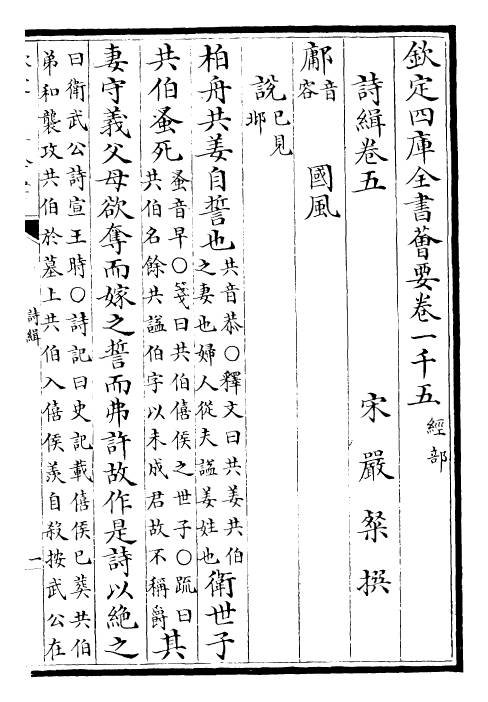 欽定四庫全書薈要卷一千五 經部
詩緝卷五
宋 嚴 粲 撰
鄘音容 國風
說已見邶
柏舟共姜自誓也共音恭○釋文曰共姜共伯之妻也婦人從夫謚姜姓也衛世子
共伯蚤死蚤音早○箋曰共伯僖侯之世子○疏曰共伯名餘共謚伯字以未成君故不稱爵其
妻守義父母欲奪而嫁之誓而弗許故作是詩以絶之
曰衛武公詩宣王時○詩記曰史記載僖侯已葬共伯
弟和襲攻共伯於墓上共伯入僖侯羨自殺按武公在
詩緝
一